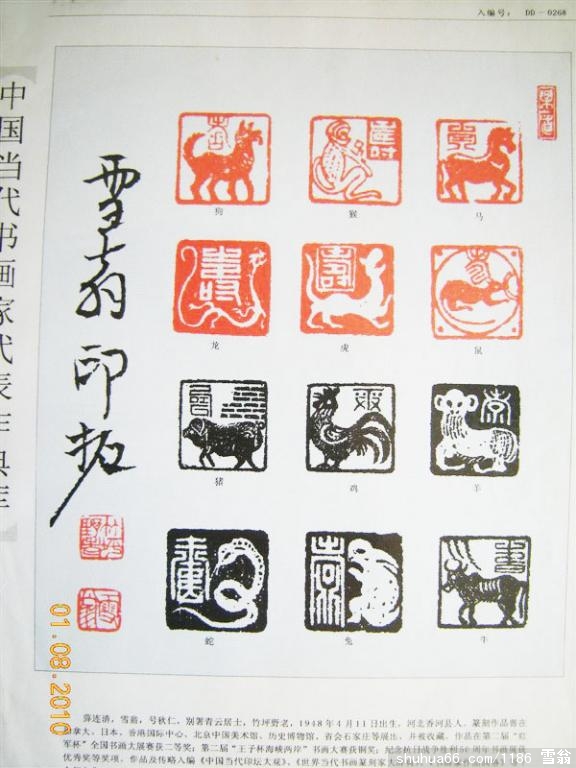 入编号: DD-0268
中国当代书画家代表作典库
雪翁印拓
狗 猴 马
龙 虎 鼠
猪 鸡 羊
蛇 兔 牛
01.08.2010
薛连清,雪翁,号秋仁,别署青云居士,竹坪野老,1948年4月11日出生,河北香河县人。篆刻作品曾在
加拿大、日本、香港国际中心、北京中国美术馆、历史博物馆、省会石家庄等展出,并被收藏。作品在第二届“红
军杯”全国书画大展赛获二等奖;第二届“王子杯海峡两岸”书画大赛获铜奖;纪念抗日战争胜利50周年书画展获
优秀奖等奖项。作品及传略入编《中国当代印坛大观》、《世界当代书画篆刻家大
shuhua66.com/1186 雪翁